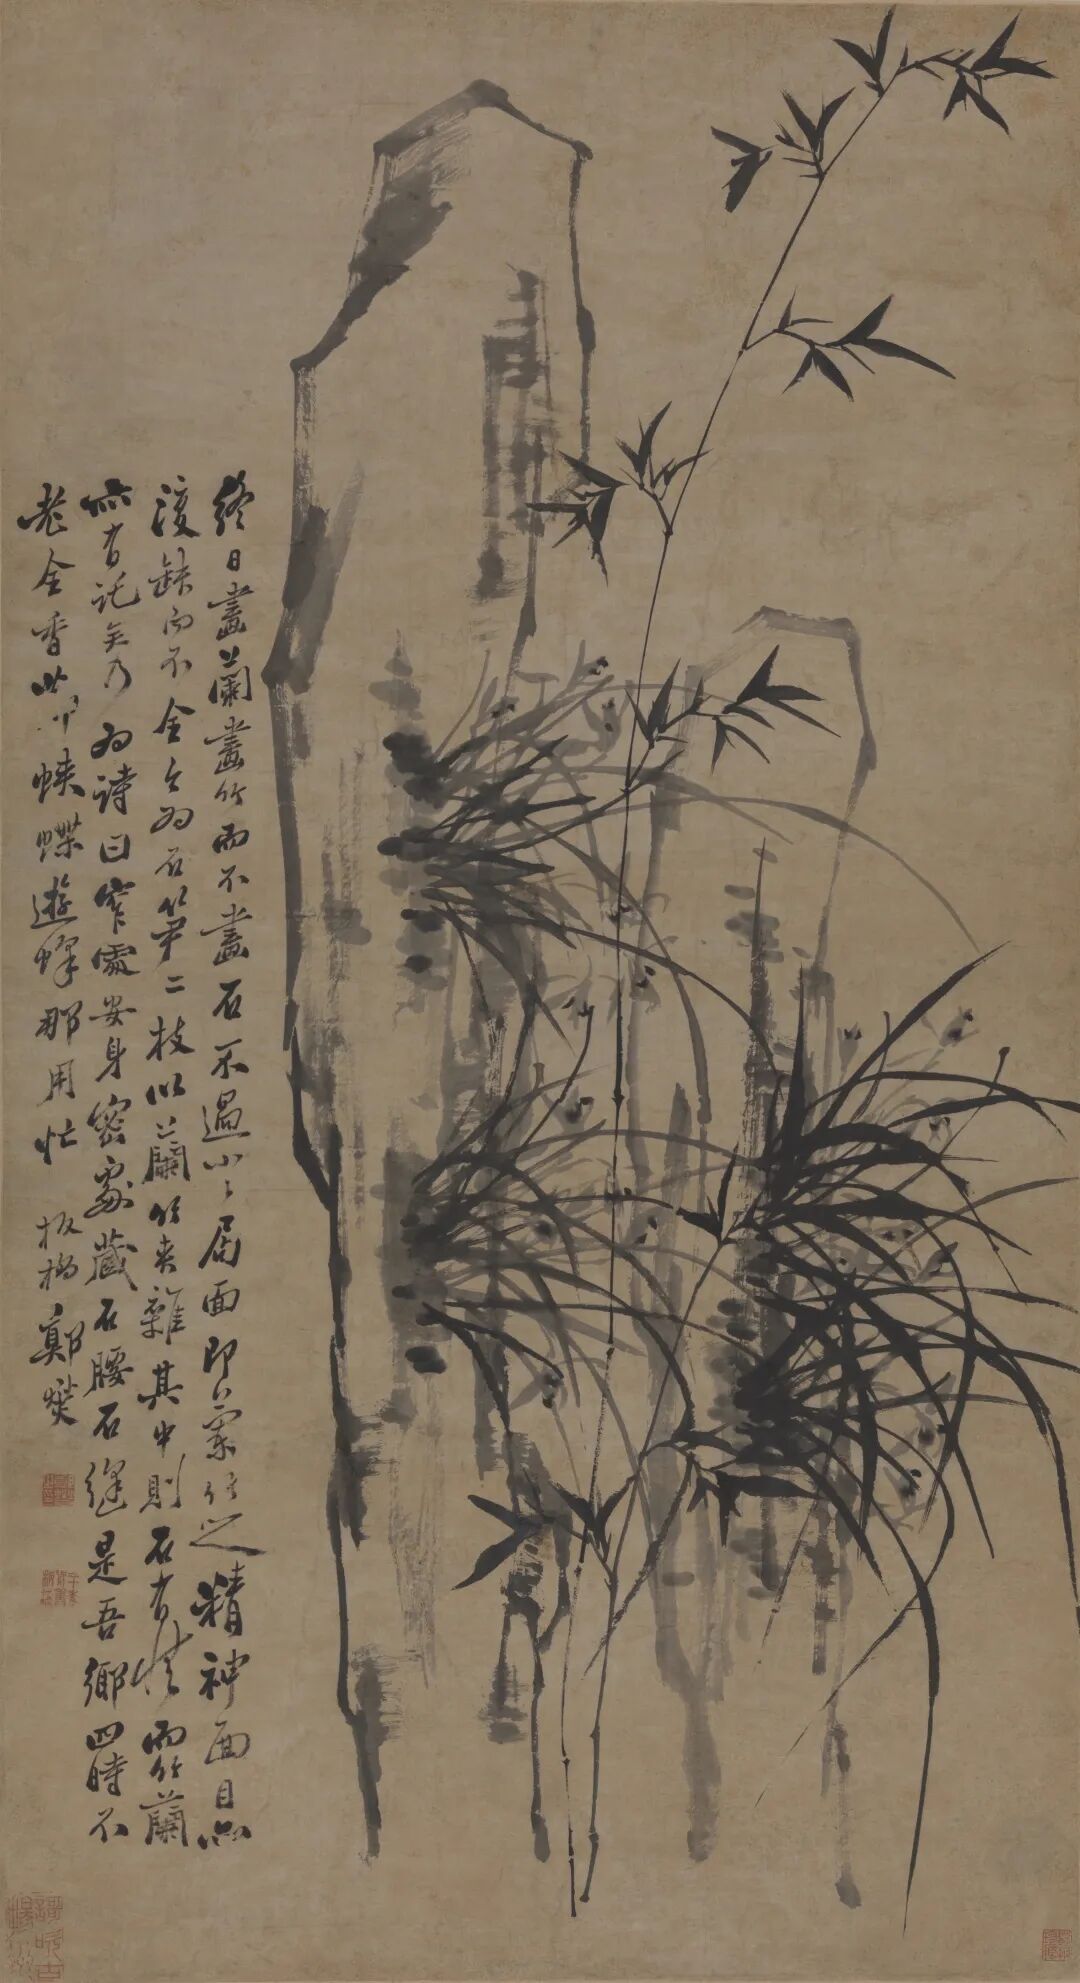 終日畫蘭畫竹而不畫石不過小小局面即蘭竹之精神面目亦
復缺而不全今為石筍二枝以蘭竹夾雜其中則石有情而竹蘭
亦有託矣乃為詩曰窄處安身密處藏石腰石縫是吾鄉四時不
老全香
蛺蝶遊蜂那用忙
板橋鄭燮